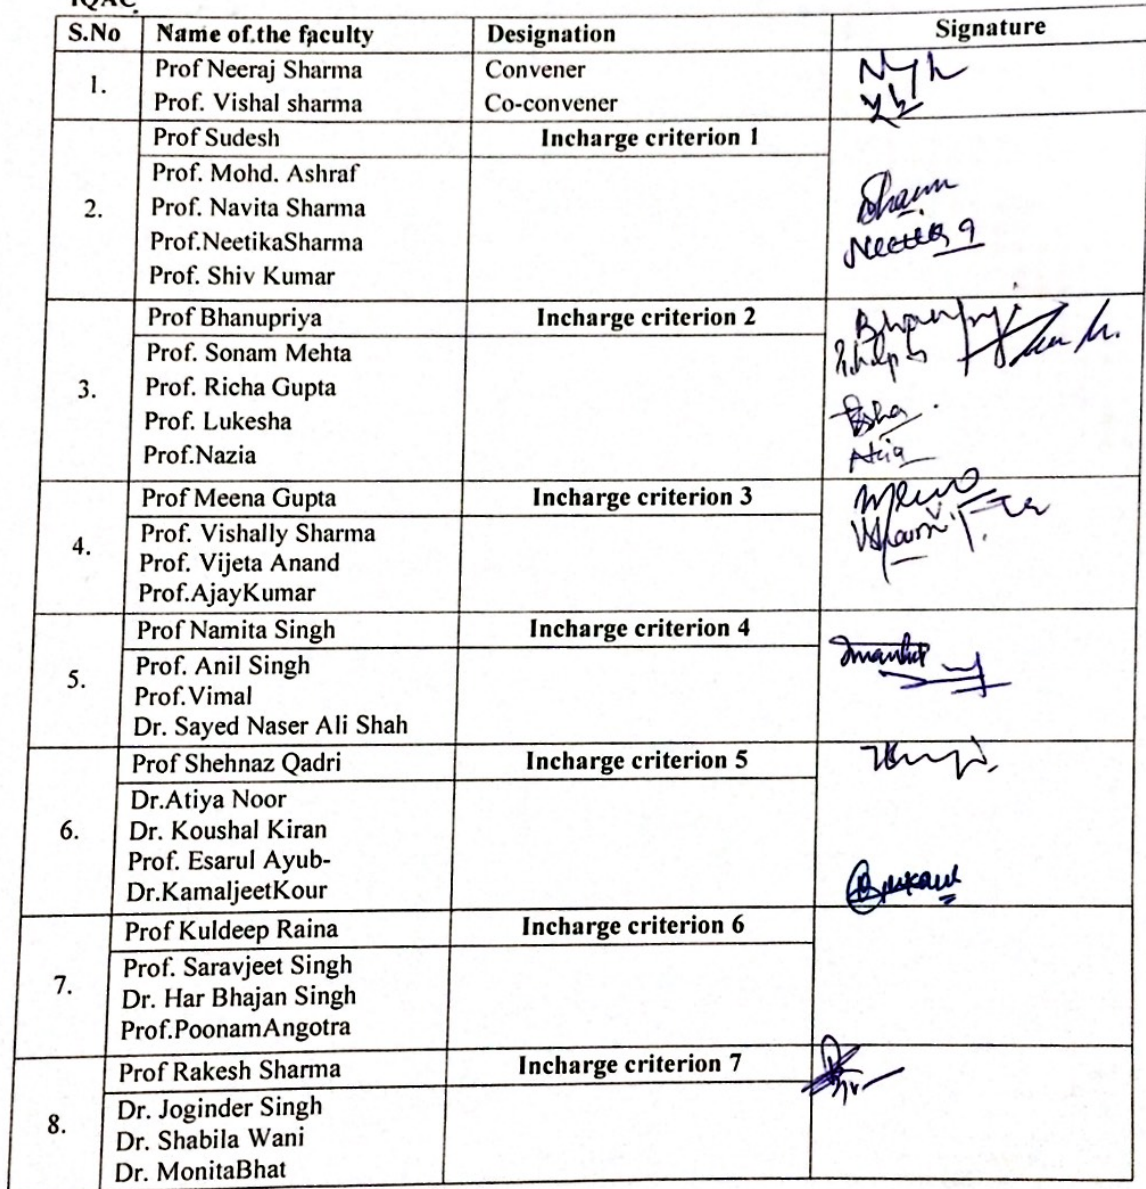 IQAC
S.No Name of.the faculty Designation Signature
1. Prof Neeraj Sharma Convener
Prof. Vishal sharma Co-convener
Prof Sudesh Incharge criterion 1
2. Prof. Mohd. Ashraf
Prof. Navita Sharma
Prof.NeetikaSharma
Prof. Shiv Kumar
Prof Bhanupriya Incharge criterion 2
3. Prof. Sonam Mehta
Prof. Richa Gupta
Prof. Lukesha
Prof.Nazia
Prof Meena Gupta Incharge criterion 3
4. Prof. Vishally Sharma
Prof. Vijeta Anand
Prof.AjayKumar
Prof Namita Singh Incharge criterion 4
5. Prof. Anil Singh
Prof.Vimal
Dr. Sayed Naser Ali Shah
Prof Shehnaz Qadri Incharge criterion 5
6. Dr.Atiya Noor
Dr. Koushal Kiran
Prof. Esarul Ayub-
Dr.KamaljeetKour
Prof Kuldeep Raina Incharge criterion 6
7. Prof. Saravjeet Singh
Dr. Har Bhajan Singh
Prof.PoonamAngotra
Prof Rakesh Sharma Incharge criterion 7
8. Dr. Joginder Singh
Dr. Shabila Wani
Dr. MonitaBhat